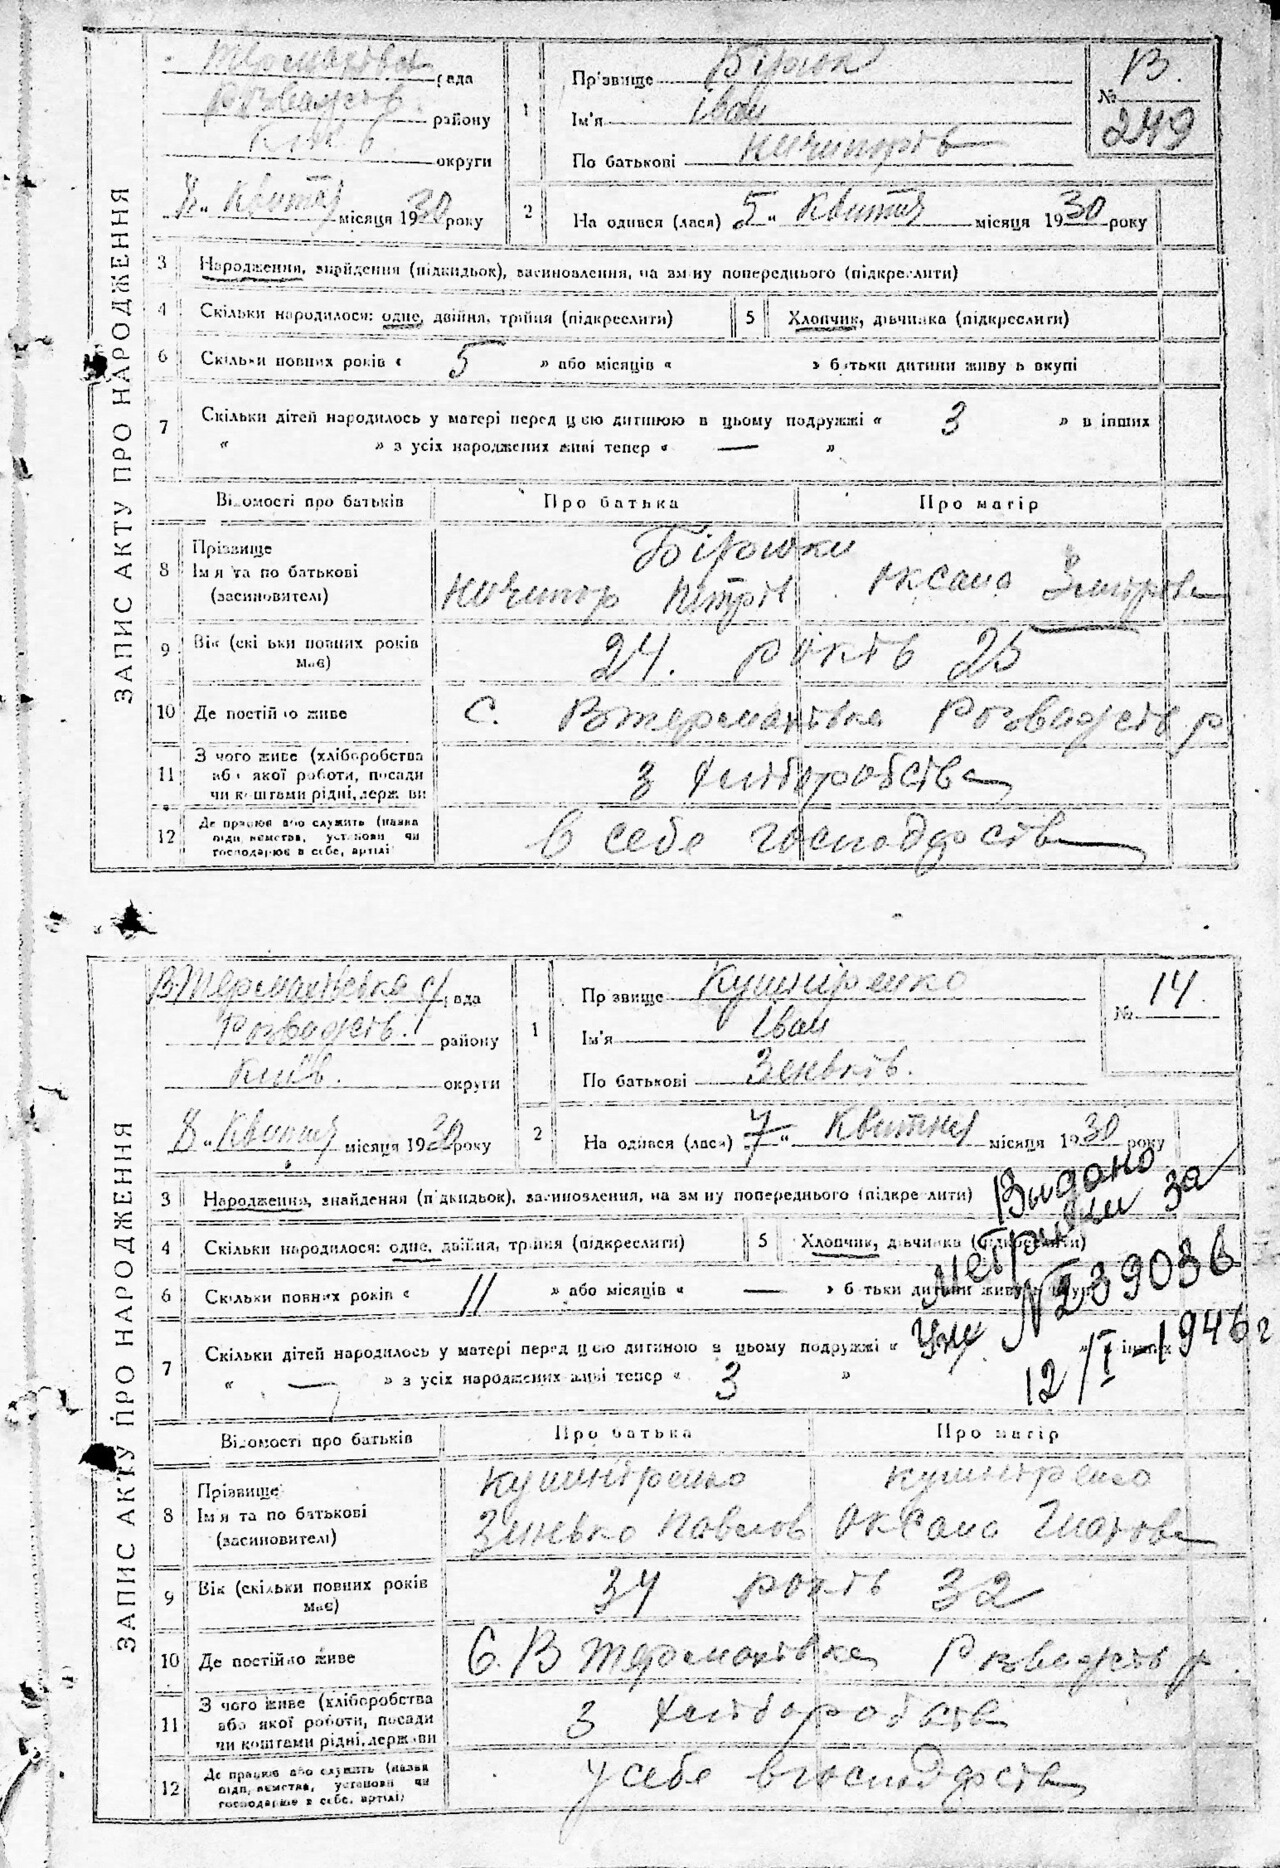 ЗАПИС АКТУ ПРО НАРОДЖЕННЯ
рада
Розважів. району
Київ. округи
8 „ Квітня місяця 1930 року
1 Прізвище Бірюк
Ім'я Іван
По батькові Ничипорів
№ 13.
249
2 На одився (лася) 5 „ Квитня місяця 1930 року
3 Народження, знайдення (підкидьок), засиновлення, на зміну попереднього (підкреслити)
4 Скільки народилося: одне, двійня, трійня (підкреслити)
5 Хлопчик, дівчинка (підкреслити)
6 Скільки повних років « 5 » або місяців « » батьки дитини живуть вкупі
7 Скільки дітей народилось у матері перед цією дитиною в цьому подружжі « 3 » в інших
« » з усіх народжених живі тепер « — »
Відомості про батьків Про батька Про матір
8 Прізвище
Ім'я та по батькові
(засиновителі)
Бірюки
Ничипор Петрів Оксана
9 Вік (скільки повних років має)
24. років 25
10 Де постійно живе с. В Термахівка Розважів р
11 З чого живе (хліборобства
або якої роботи, посади
чи коштами рідні, держави
з хліборобства
12 Де працює або служить (назва
підприємства, установи чи
господарює в себе, артілі)
в себе господарстві
ЗАПИС АКТУ ПРО НАРОДЖЕННЯ
В Термахівська с/рада
Розважів. району
Київ. округи
8 „ Квитня місяця 1930 року
1 Прізвище Кушніренко
Ім'я Іван
По батькові Зеньків.
№ 14.
2 На одився (лася) 7 „ Квитня місяця 1930 року
3 Народження, знайдення (підкидьок), засиновлення, на зміну попереднього (підкреслити)
4 Скільки народилося: одне, двійня, трійня (підкреслити)
5 Хлопчик, дівчинка (підкреслити)
6 Скільки повних років « 11 » або місяців « — » батьки дитини живуть
7 Скільки дітей народилось у матері перед цією дитиною в цьому подружжі « » інших
« — » з усіх народжених живі тепер « 3 »
Выдано
метрики за
№ 239036
12/I-1946 г
Відомості про батьків Про батька Про матір
8 Прізвище
Ім'я та по батькові
(засиновителі)
Кушніренко Кушніренко
Зинько Павлов Оксана Гнатова
9 Вік (скільки повних років має)
34 років 32
10 Де постійно живе С. В Термахівка Розважів р.
11 З чого живе (хліборобства
або якої роботи, посади
чи коштами рідні, держави
З хліборобства
12 Де працює або служить (назва
підприємства, установи чи
господарює в себе, артілі)
у себе в господарстві